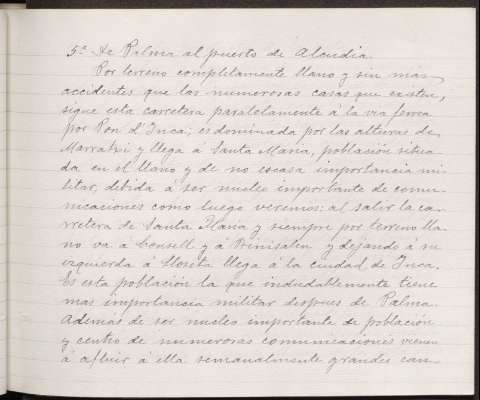 5ª De Palma al puerto de Alcudia.
Por terreno completamente llano y sin más
accidentes que las numerosas casas que existen,
sigue esta carretera paralelamente á la via ferrea
por Pon d'Inca; es dominada por las alturas de
Marratxi y llega á Santa Maria, población situa-
da en el llano y de no escasa importancia mi-
litar, debida á ser nucleo importante de comu-
nicaciones como luego veremos: al salir la ca-
rretera de Santa Maria y siempre por terreno lla-
no va á Consell y á Binisalem y dejando á su
izquierda á Lloseta llega á la ciudad de Inca.
Es esta población la que indudablemente tiene
más importancia militar despues de Palma.
Además de ser nucleo importante de población
y centro de numerosas comunicaciones vienen
á afluir á ella semanalmente grandes can-